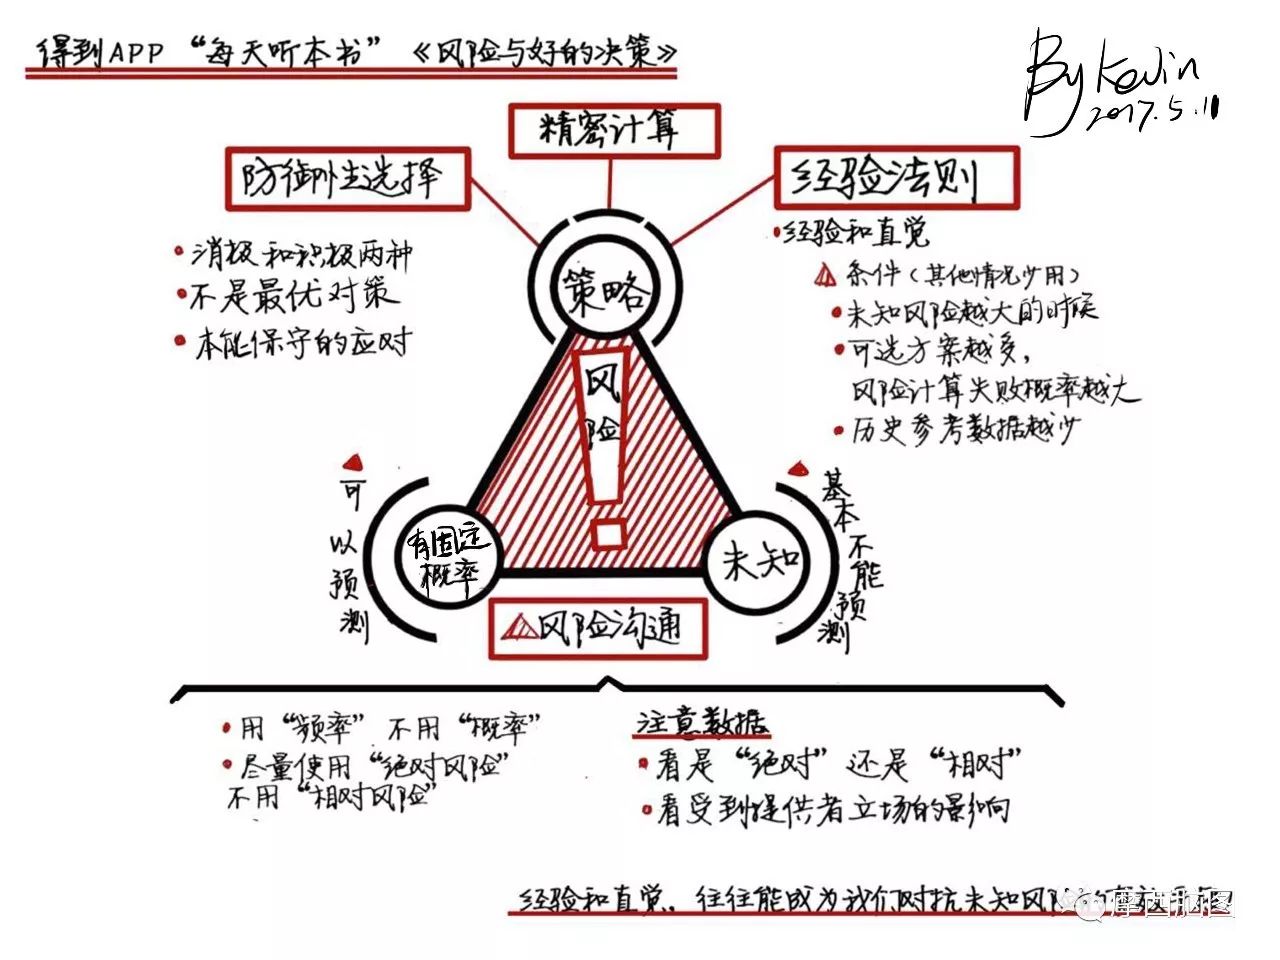 得到APP “每天听本书” 《风险与好的决策》
By Kevin
2017.5.11
精密计算
防御性选择
经验法则
• 消极和积极两种
• 不是最优对策
• 本能保守的应对
• 经验和直觉
条件（其他情况少用）
• 未知风险越大的时候
• 可选方案越多，
风险计算失败概率越大
• 历史参考数据越少
策略
风险
可以预测
有固定
概率
未知
基本不能预测
风险沟通
• 用“频率” 不用“概率”
• 尽量使用“绝对风险”
不用“相对风险”
注意数据
• 看是“绝对”还是“相对”
• 看受到提供者立场的影响
经验和直觉，往往能成为我们对抗未知风险的
摩西脑图